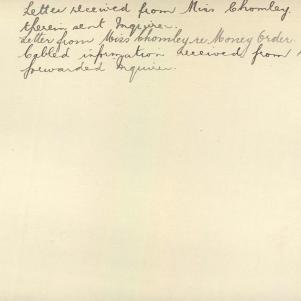 Letter received from Miss Chomley.
therein sent Inquirer.
Letter from Miss Chomley re Money Order.
Cabled information received from
forwarded Inquirer.